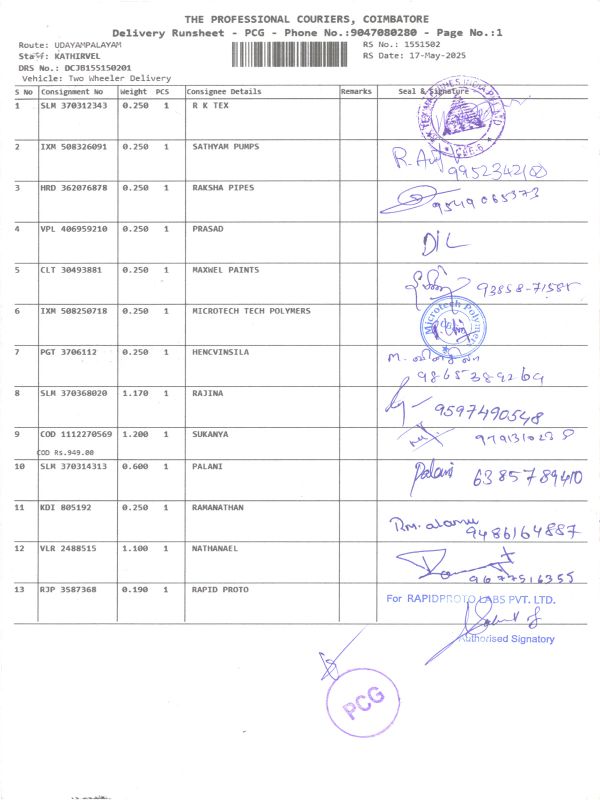 THE PROFESSIONAL COURIERS, COIMBATORE
Delivery Runsheet - PCG - Phone No.:9047080280 - Page No.:1
Route: UDAYAMPALAYAM
RS No.: 1551502
Staff: KATHIRVEL
RS Date: 17-May-2025
DRS No.: DCJB155150201
Vehicle: Two Wheeler Delivery
S No Consignment No Weight PCS Consignee Details Remarks Seal & Signature
1 SLM 370312343 0.250 1 R K TEX
2 IXM 508326091 0.250 1 SATHYAM PUMPS
3 HRD 362076878 0.250 1 RAKSHA PIPES
9549065373
4 VPL 406959210 0.250 1 PRASAD
5 CLT 30493881 0.250 1 MAXWEL PAINTS
6 IXM 508250718 0.250 1 MICROTECH TECH POLYMERS
Microtech Polymers
7 PGT 3706112 0.250 1 HENCVINSILA
9865389269
8 SLM 370368020 1.170 1 RAJINA
9597490548
9 COD 1112270569 1.200 1 SUKANYA
COD Rs.949.00
10 SLM 370314313 0.600 1 PALANI
Palani 6385789410
11 KDI 805192 0.250 1 RAMANATHAN
RM. alamu
9486164887
12 VLR 2488515 1.100 1 NATHANAEL
9677516355
13 RJP 3587368 0.190 1 RAPID PROTO
For RAPIDPROTO LABS PVT. LTD.
Authorised Signatory
PCG